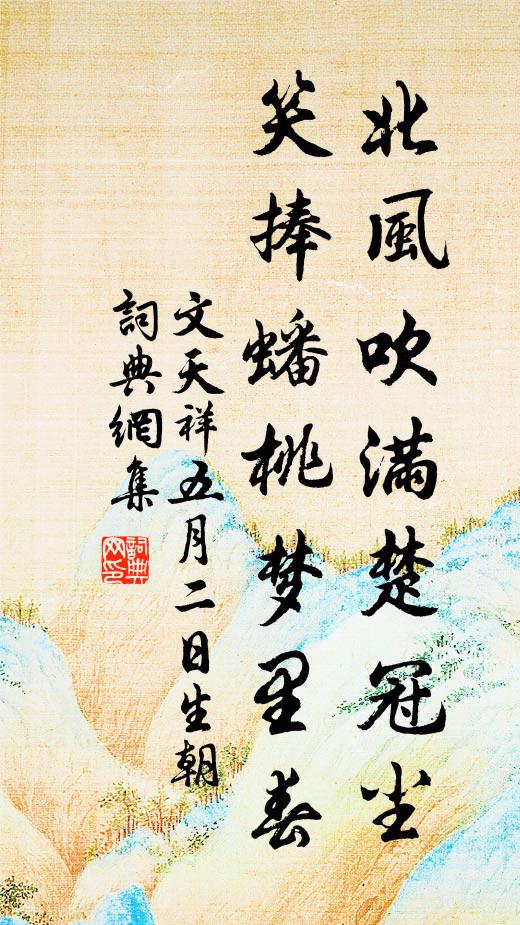 北風吹满楚冠尘
笑捧蟠桃梦里春
文天祥五月二日生朝
詞典網集
詞典网印